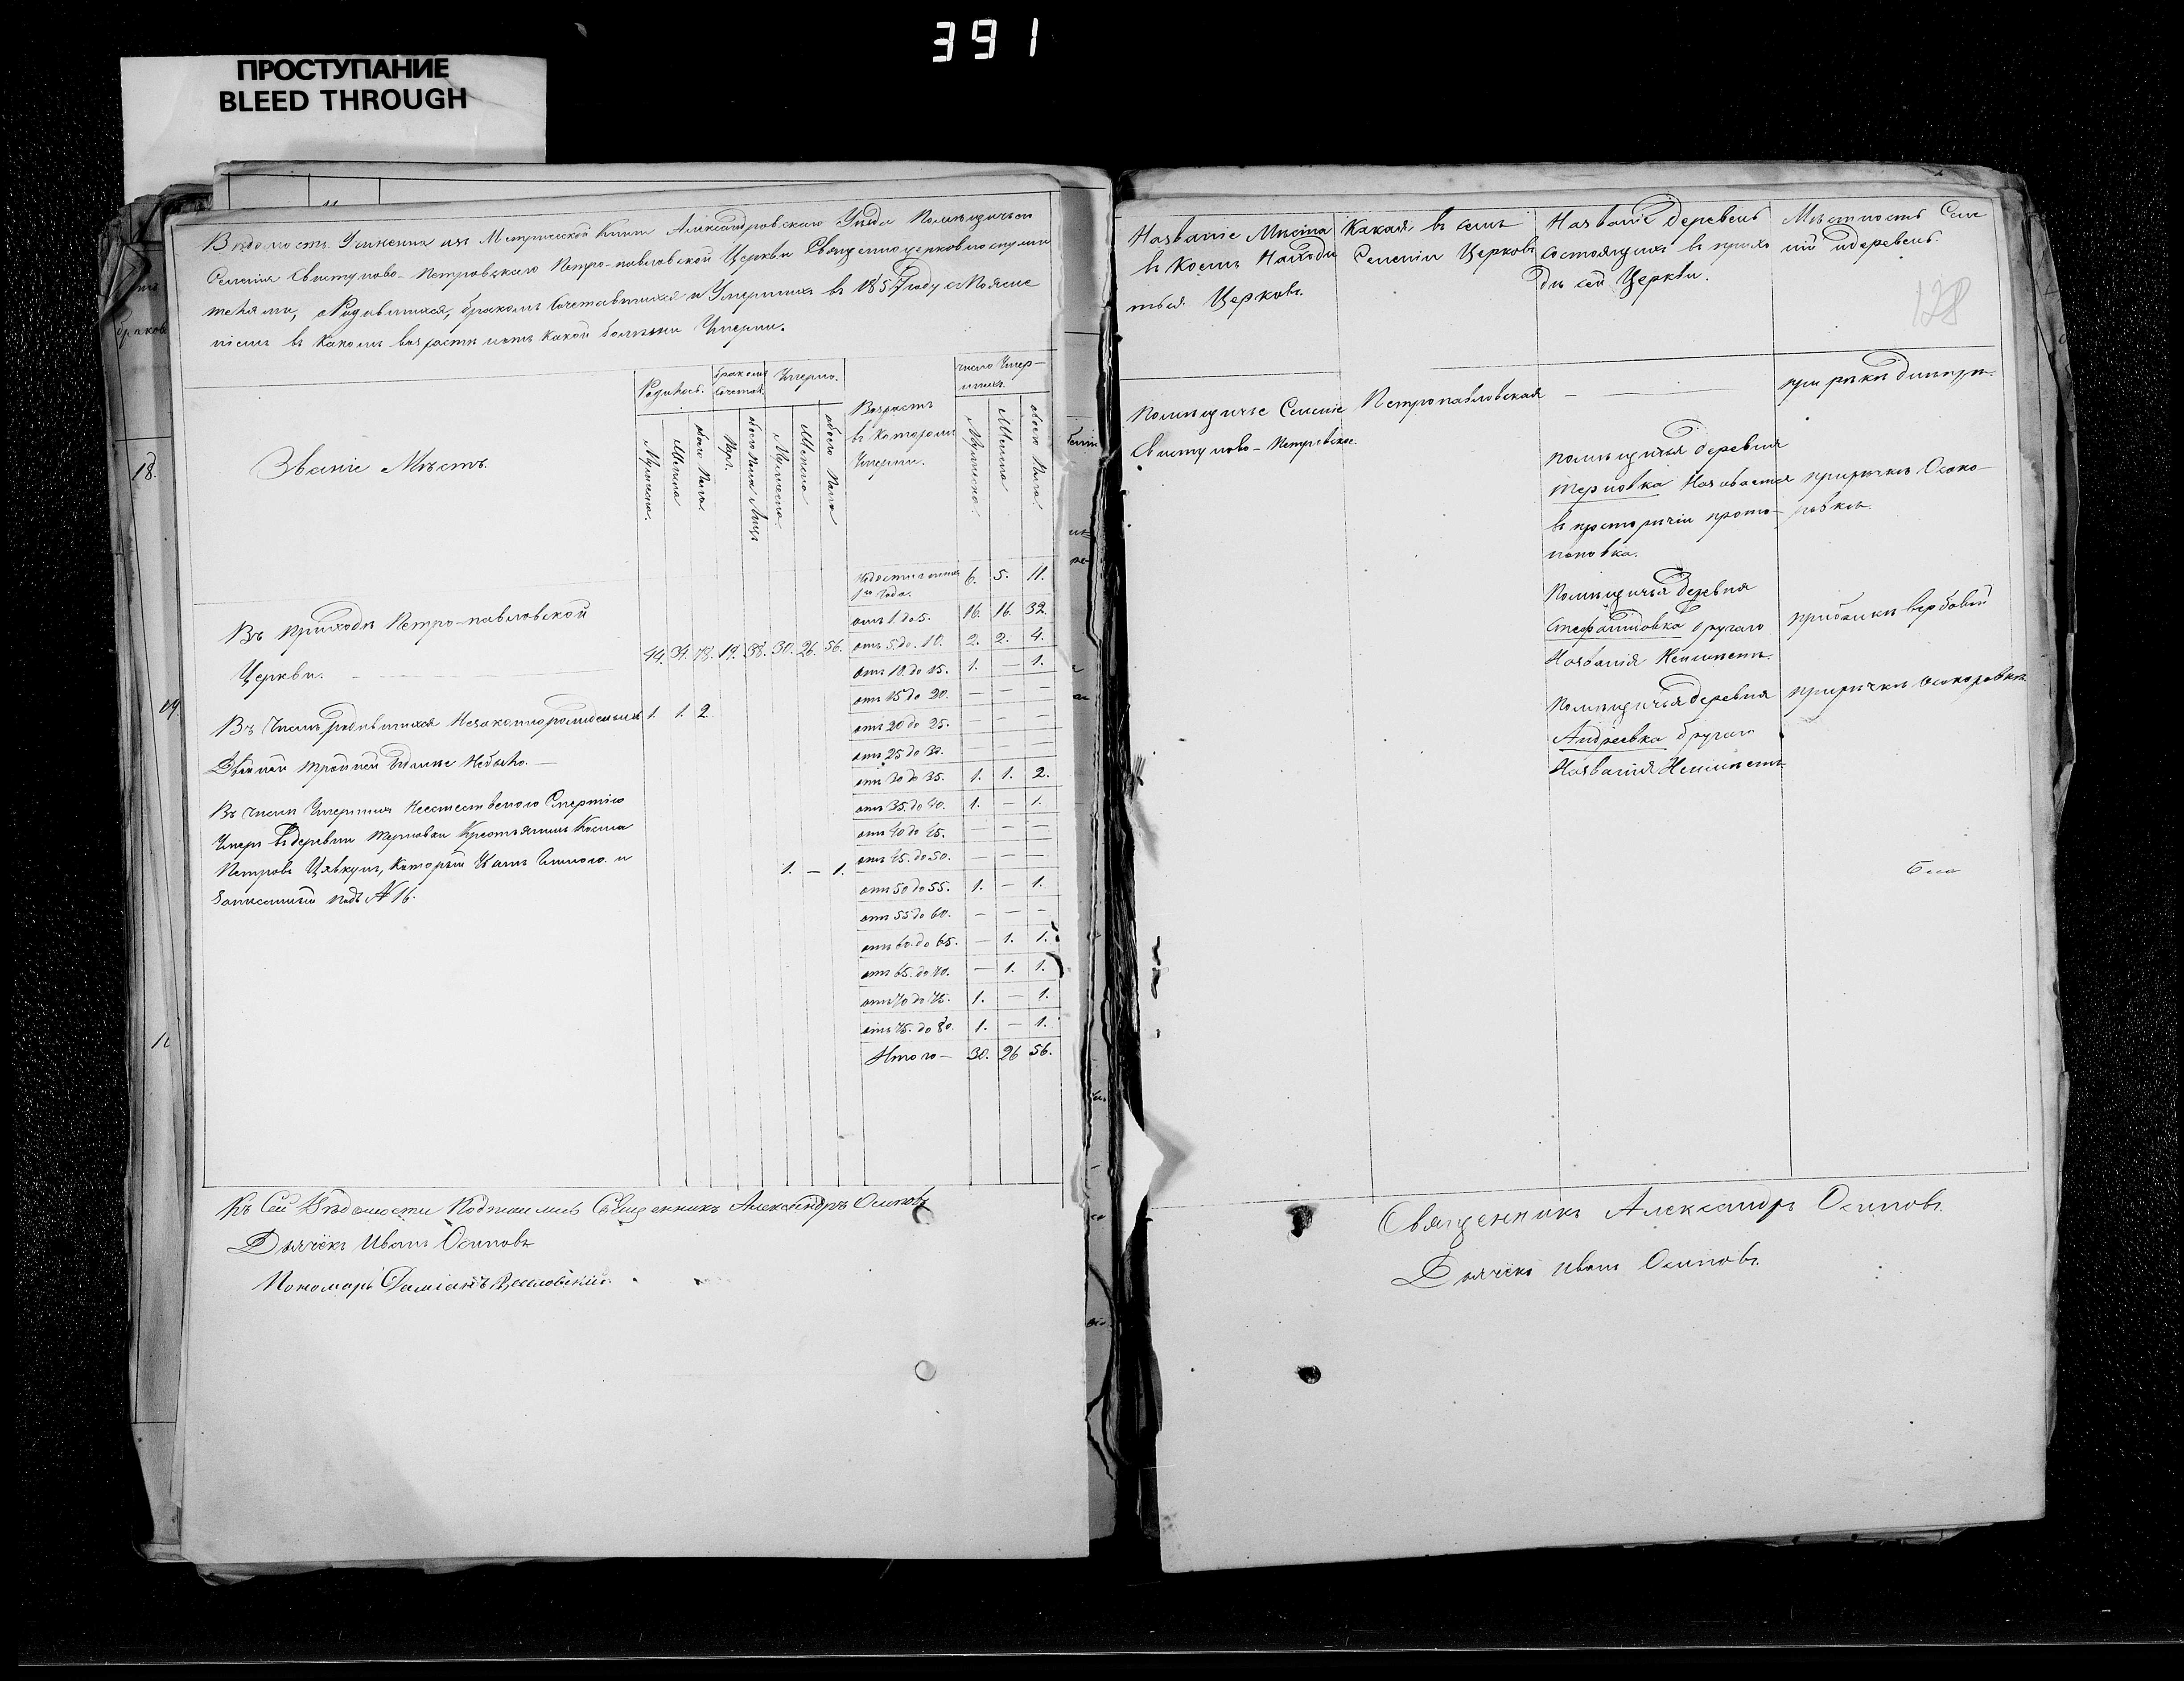 391
ПРОСТУПАНИЕ
BLEED THROUGH
Вѣдомость Учинения изъ Метрической Книги Александровскаго Уѣзда Помѣщичьей
Селенія Свистуново-Петровскаго Петро-павловской Церкви Священноцерковнослужи
телями, о Родившихся, бракомъ Сочетавшихся и Умершихъ въ 1857 году с Поясне
ніемъ въ какомъ возрастѣ и отъ какой болѣзни Умерли.
Званіе Мѣстъ.
Родилось.
бракомъ Сочетал.
Умерло.
Возрастъ въ которомъ Умерли.
число Умер-
шихъ.
Мужеска.
Женска
обоего Пола.
Паръ.
обоего Пола Лицъ
Мужеска
Женска
обоего Пола
Мужеска.
Женска
обоего Пола.
Недостигшихъ
го года. 6. 5. 11.
отъ 1 до 5. 16. 16. 32.
Въ Приходѣ Петро-павловской
Церкви. 44. 34. 78. 19. 38. 30. 26. 56.
отъ 5 до 10. 2. 2. 4.
отъ 10 до 15. 1. — 1.
отъ 15 до 20. — — —
Въ Числѣ родившихся Незаконнорожденныхъ 1. 1. 2
отъ 20 до 25. — — —
отъ 25 до 30. — — —
Двойней тройней Небыло. —
отъ 30 до 35. 1. 1. 2.
отъ 35 до 40. 1. — 1.
Въ числѣ Умершихъ Неестественною Смертію
отъ 40 до 45. — — —
Умеръ въ деревни Терновки Крестьянинъ Косма
отъ 45. до 50. — — —
Петровъ который
1. — 1.
отъ 50 до 55. 1. — 1.
записанный подъ № 16.
отъ 55 до 60. — — —
отъ 60. до 65. — 1. 1.
отъ 65. до 70. — 1. 1.
отъ 70 до 75. 1. — 1.
отъ 75. до 80. 1. — 1.
Итого — 30. 26 56.
Къ Сей Вѣдомости Подписались Священникъ Александръ Осиповъ
Дьячекъ Иванъ Осиповъ
Пономарь Даміанъ
Названіе Мѣста
въ коемъ Находи
ться Церковь.
Какая въ семъ
Селеніи Церковь
Названіе Деревень
состоящихъ въ прихо
дѣ сей Церкви.
Мѣстность Селе
ній и деревень.
128
Помѣщичье Селеніе
Свистуново-Петровское.
Петропавловская
— —
при рѣки Днѣпрѣ.
помѣщичья деревня
Терновка Называется
въ просторѣчіи прото-
поповка.
при рѣчкѣ Осоко-
ровкѣ.
Помѣщичья деревня
Стефанидовка другаго
Названія Неимѣетъ.
при балки вербовой
Помѣщичья деревня
Андреевка другаго
Названія Неимѣетъ
при рѣчкѣ Осокоровкѣ
Священникъ Александръ Осиповъ.
Дьячекъ Иванъ Осиповъ.
18.